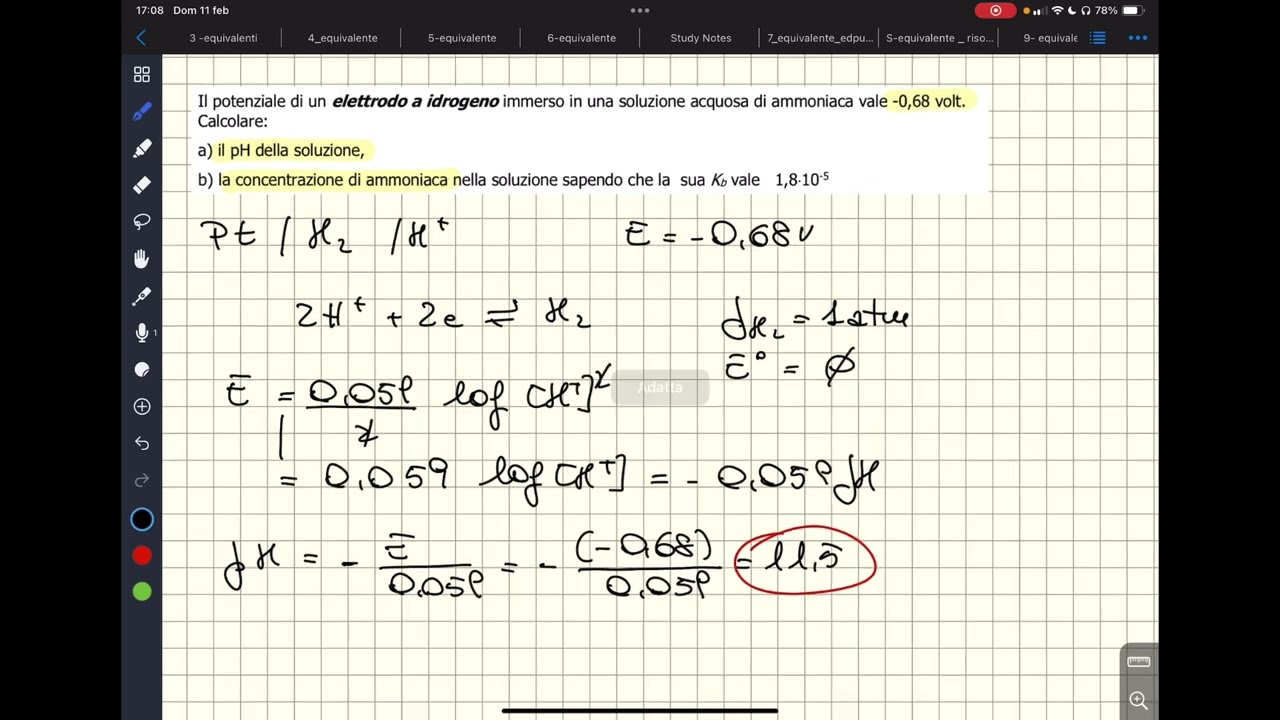 17:08 Dom 11 feb
78%
3 -equivalenti
4_equivalente
5-equivalente
6-equivalente
Study Notes
7_equivalente_edpu...
S-equivalente _ riso...
9- equivale
Il potenziale di un elettrodo a idrogeno immerso in una soluzione acquosa di ammoniaca vale -0,68 volt.
Calcolare:
a) il pH della soluzione,
b) la concentrazione di ammoniaca nella soluzione sapendo che la sua Kb vale 1,8·10⁻⁵
Pt / H₂ / H⁺ E = -0,68 V
2H⁺ + 2e ⇌ H₂ pH₂ = 1 atm
E° = ∅
E = 0,059/2 log [H⁺]²
Adatta
= 0,059 log [H⁺] = - 0,059 pH
pH = - E/0,059 = - (-0,68)/0,059 = 11,5
1